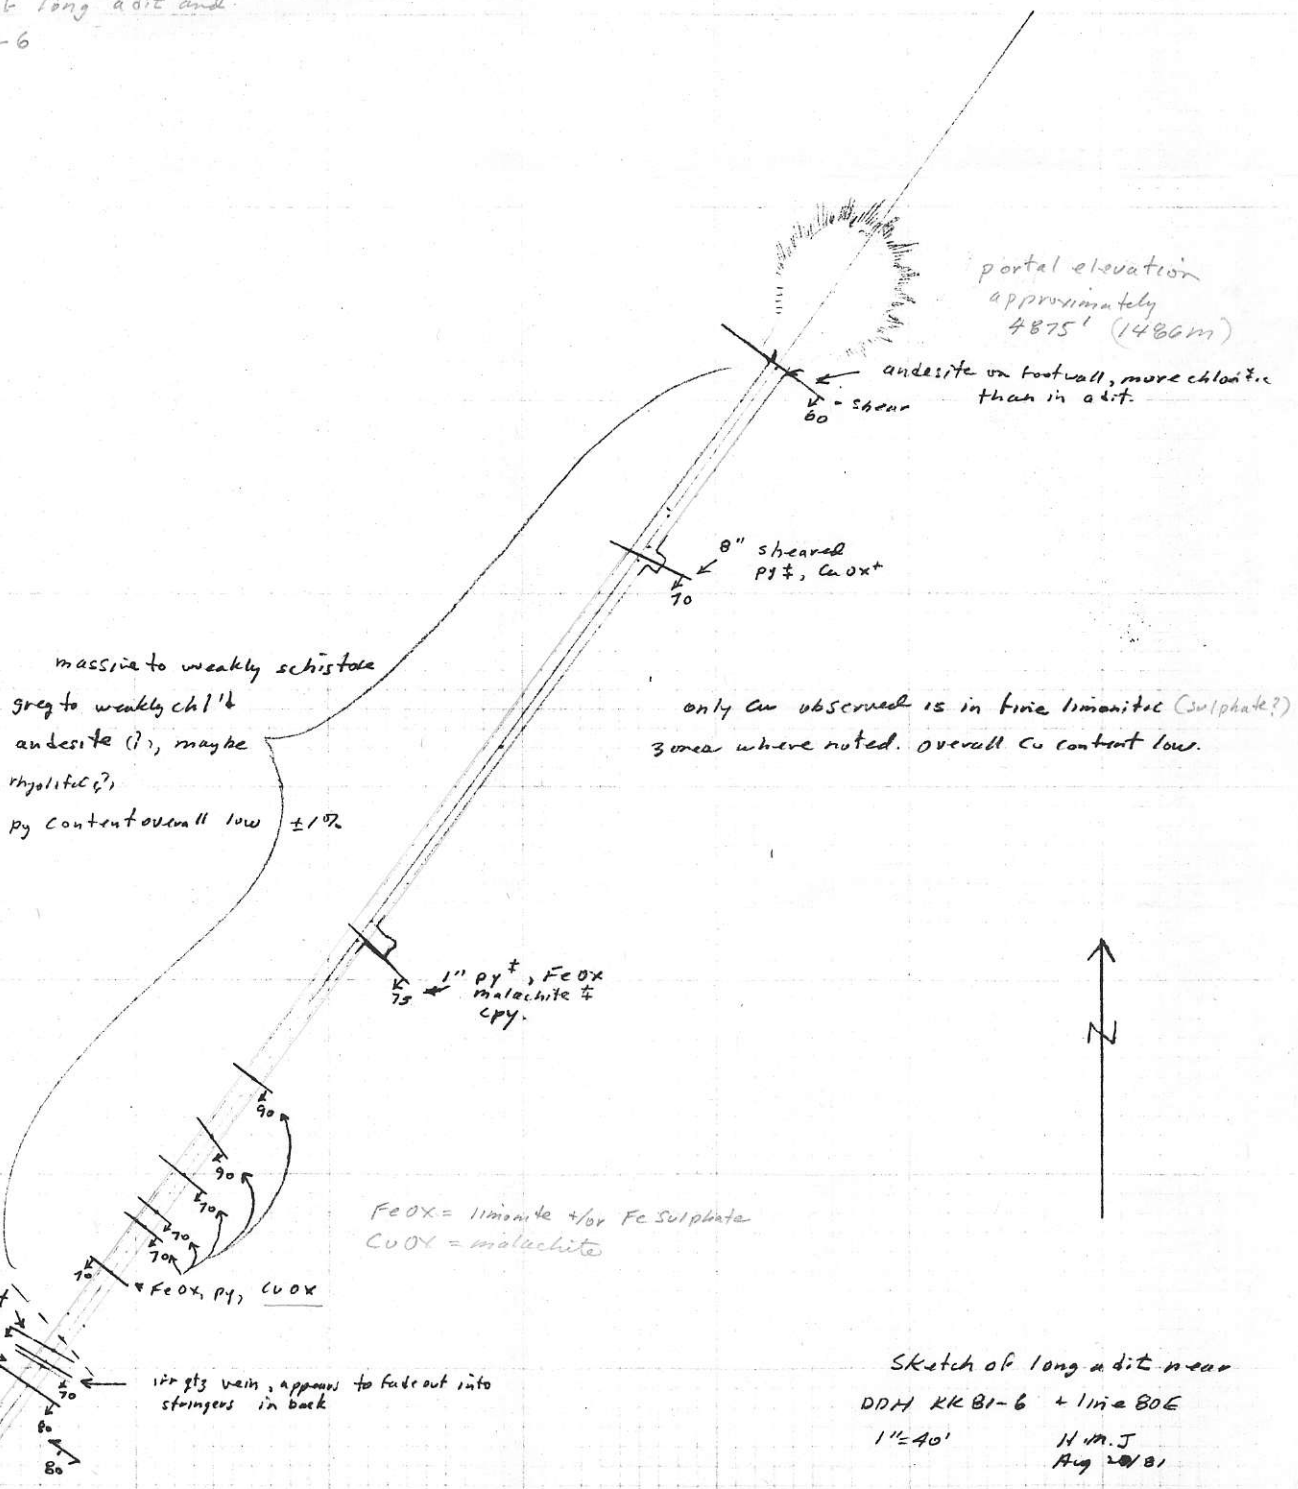 long adit and
-6
portal elevation
approximately
4875' (1486m)
andesite on footwall, more chloritic
than in adit.
60 - shear
8" sheared
py ±, CuOx+
70
massive to weakly schistose
grey to weakly chl't
andesite (?), maybe
rhyolite(?)
py content overall low ±1%
only Cu observed is in fine limonitic (sulphate?)
zones where noted. overall Cu content low.
1" py ±, FeOX
malachite ±
cpy.
75
N
90
90
70
70
70
70
FeOX = limonite +/or Fe Sulphate
CuOX = malachite
FeOx, py, CuOx
irr qtz vein, appears to fade out into
stringers in back
70
80
80
Sketch of long adit near
DDH KK81-6 + line 80E
1"=40'
H.M.J
Aug /81